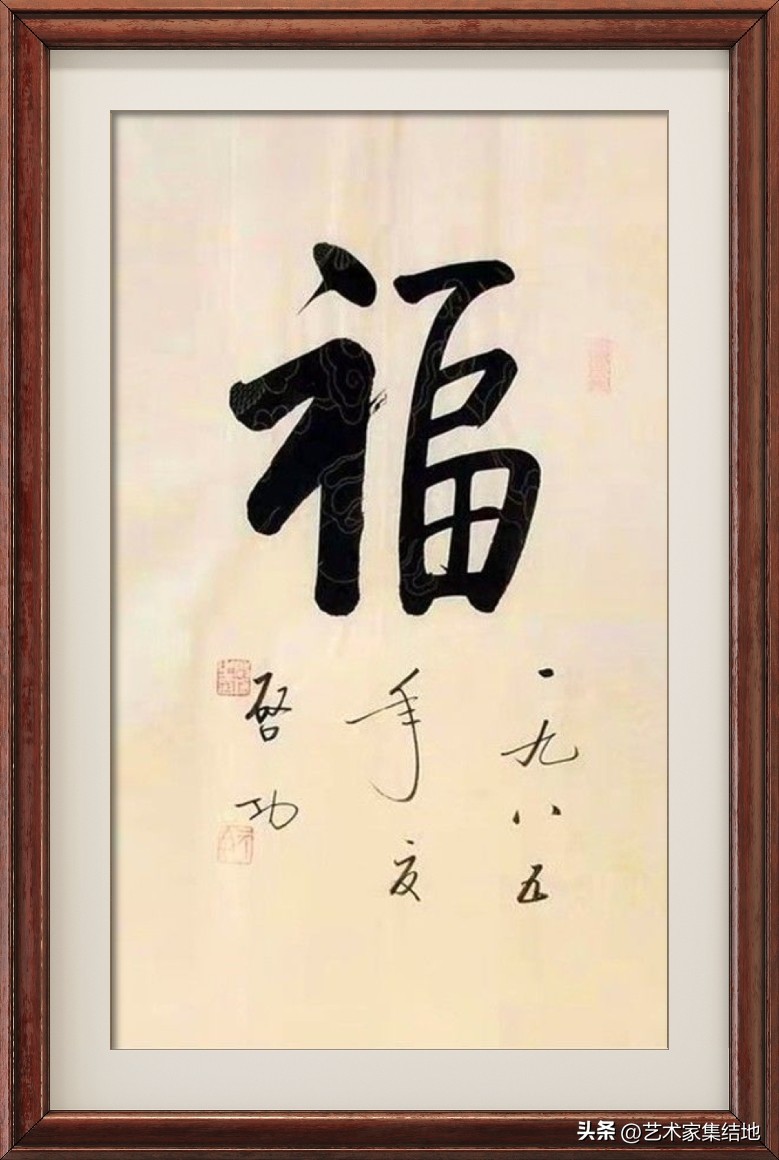 福
一九八五
年夏
啓功
头条 @艺术家集结地